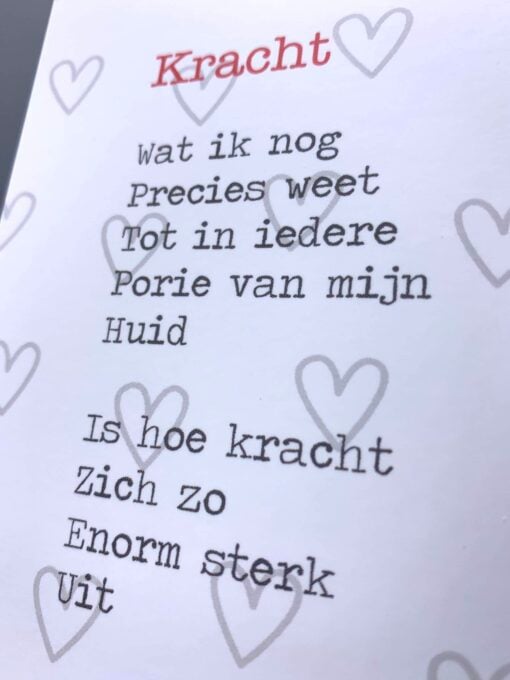 Kracht
Wat ik nog
Precies weet
Tot in iedere
Porie van mijn
Huid
Is hoe kracht
Zich zo
Enorm sterk
Uit